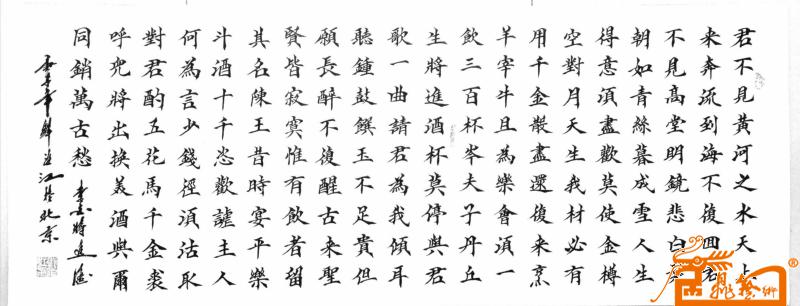 君不見黃河之水天上
來奔流到海不復回君
不見高堂明鏡悲白
朝如青絲暮成雪人生
得意須盡歡莫使金樽
空對月天生我材必有
用千金散盡還復來烹
羊宰牛且為樂會須一
飲三百杯岑夫子丹丘
生將進酒杯莫停與君
歌一曲請君為我傾耳
聽鍾鼓饌玉不足貴但
願長醉不復醒古來聖
賢皆寂寞惟有飲者留
其名陳王昔時宴平樂
斗酒十千恣歡謔主人
何為言少錢徑須沽取
對君酌五花馬千金裘
呼兒將出換美酒與爾
同銷萬古愁
李白將進酒
年江北京